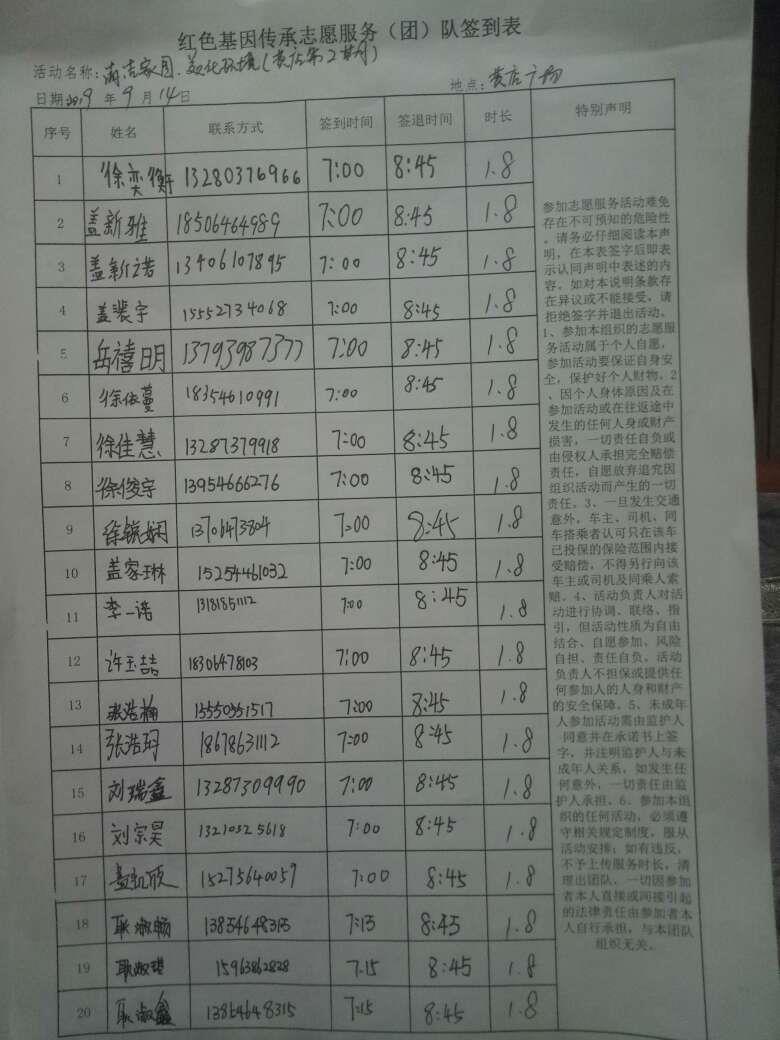 红色基因传承志愿服务（团）队签到表
活动名称：清洁家园、美化环境（黄店第2期）
地点：黄店广场
日期2019年9月14日
序号 姓名 联系方式 签到时间 签退时间 时长 特别声明
1 徐奕衡 13280376966 7:00 8:45 1.8
2 盖新雅 18506464989 7:00 8:45 1.8
3 盖新诺 13406107895 7:00 8:45 1.8
4 盖裴宇 15552734068 7:00 8:45 1.8
5 岳禧明 13793987377 7:00 8:45 1.8
6 徐依蔓 18354610991 7:00 8:45 1.8
7 徐佳慧 13287379918 7:00 8:45 1.8
8 徐俊宇 13954666276 7:00 8:45 1.8
9 徐毓娴 13706473804 7:00 8:45 1.8
10 盖家琳 15254461032 7:00 8:45 1.8
11 李一诺 13181851112 7:00 8:45 1.8
12 许玉喆 18306478103 7:00 8:45 1.8
13 张浩翰 15550551517 7:00 8:45 1.8
14 张浩玥 18678631112 7:00 8:45 1.8
15 刘瑞鑫 13287309990 7:00 8:45 1.8
16 刘宗昊 13210325618 7:00 8:45 1.8
17 盖凯欣 15275640059 7:00 8:45 1.8
18 耿淑畅 13854648315 7:15 8:45 1.8
19 耿淑琪 15963862828 7:15 8:45 1.8
20 耿淑鑫 13854648315 7:15 8:45 1.8
参加志愿服务活动难免
存在不可预知的危险性
。请务必仔细阅读本声
明，在本表签字后即表
示认同声明中表述的内
容。如对本说明条款存
在异议或不能接受，请
拒绝签字并退出活动。
1、参加本组织的志愿服
务活动属于个人自愿，
参加活动要保证自身安
全，保护好个人财物。2
、因个人身体原因及在
参加活动或在往返途中
发生的任何人身或财产
损害，一切责任自负或
由侵权人承担完全赔偿
责任，自愿放弃追究因
组织活动而产生的一切
责任。3、一旦发生交通
意外，车主、司机、同
车搭乘者认可只在该车
已投保的保险范围内接
受赔偿，不得另行向该
车主或司机及同乘人索
赔。4、活动负责人对活
动进行协调、联络、指
引，但活动性质为自由
结合、自愿参加、风险
自担、责任自负。活动
负责人不担保或提供任
何参加人的人身和财产
的安全保障。5、未成年
人参加活动需由监护人
同意并在承诺书上签
字，并注明监护人与未
成年人关系，如发生任
何意外，一切责任由监
护人承担。6、参加本组
织的任何活动，必须遵
守相关规定制度，服从
活动安排；如有违反，
不予上传服务时长，清
理出团队。一切因参加
者本人直接或间接引起
的法律责任由参加者本
人自行承担，与本团队
组织无关。